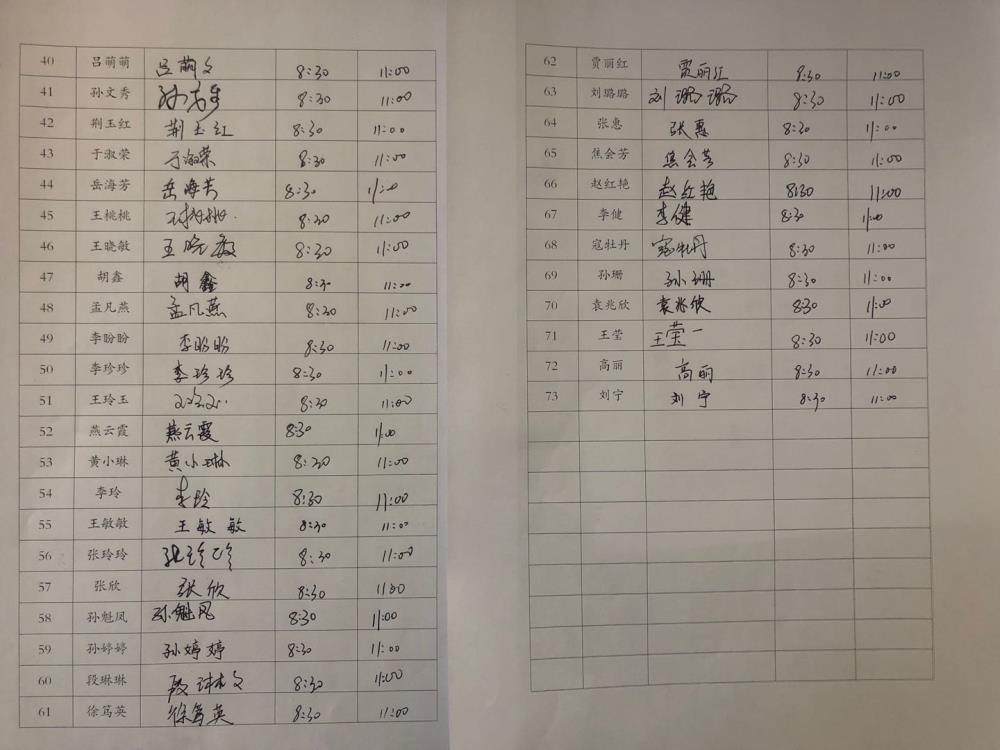 40 吕萌萌 吕萌文 8:30 11:00
41 孙文秀 孙文秀 8:30 11:00
42 荆玉红 荆玉红 8:30 11:00
43 于淑荣 于淑荣 8:30 11:00
44 岳海芳 岳海芳 8:30 11:00
45 王桃桃 王桃桃 8:30 11:00
46 王晓敏 王晓敏 8:30 11:00
47 胡鑫 胡鑫 8:30 11:00
48 孟凡燕 孟凡燕 8:30 11:00
49 李盼盼 李盼盼 8:30 11:00
50 李珍珍 李珍珍 8:30 11:00
51 王玲玉 8:30 11:00
52 燕云霞 燕云霞 8:30 11:00
53 黄小琳 黄小琳 8:30 11:00
54 李玲 李玲 8:30 11:00
55 王敏敏 王敏敏 8:30 11:00
56 张玲玲 张玲玲 8:30 11:00
57 张欣 张欣 8:30 11:00
58 孙魁凤 孙魁凤 8:30 11:00
59 孙婷婷 孙婷婷 8:30 11:00
60 段琳琳 段琳文 8:30 11:00
61 徐笃英 徐笃英 8:30 11:00
62 贾丽红 贾丽红 8:30 11:00
63 刘璐璐 刘璐璐 8:30 11:00
64 张惠 张惠 8:30 11:00
65 焦会芳 焦会芳 8:30 11:00
66 赵红艳 赵红艳 8:30 11:00
67 李健 李健 8:30 11:00
68 寇牡丹 寇牡丹 8:30 11:00
69 孙珊 孙珊 8:30 11:00
70 袁兆欣 袁兆欣 8:30 11:00
71 王莹 王莹 8:30 11:00
72 高丽 高丽 8:30 11:00
73 刘宁 刘宁 8:30 11:00